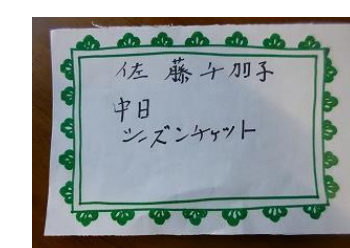 佐藤千加子
中日
シーズンチケット